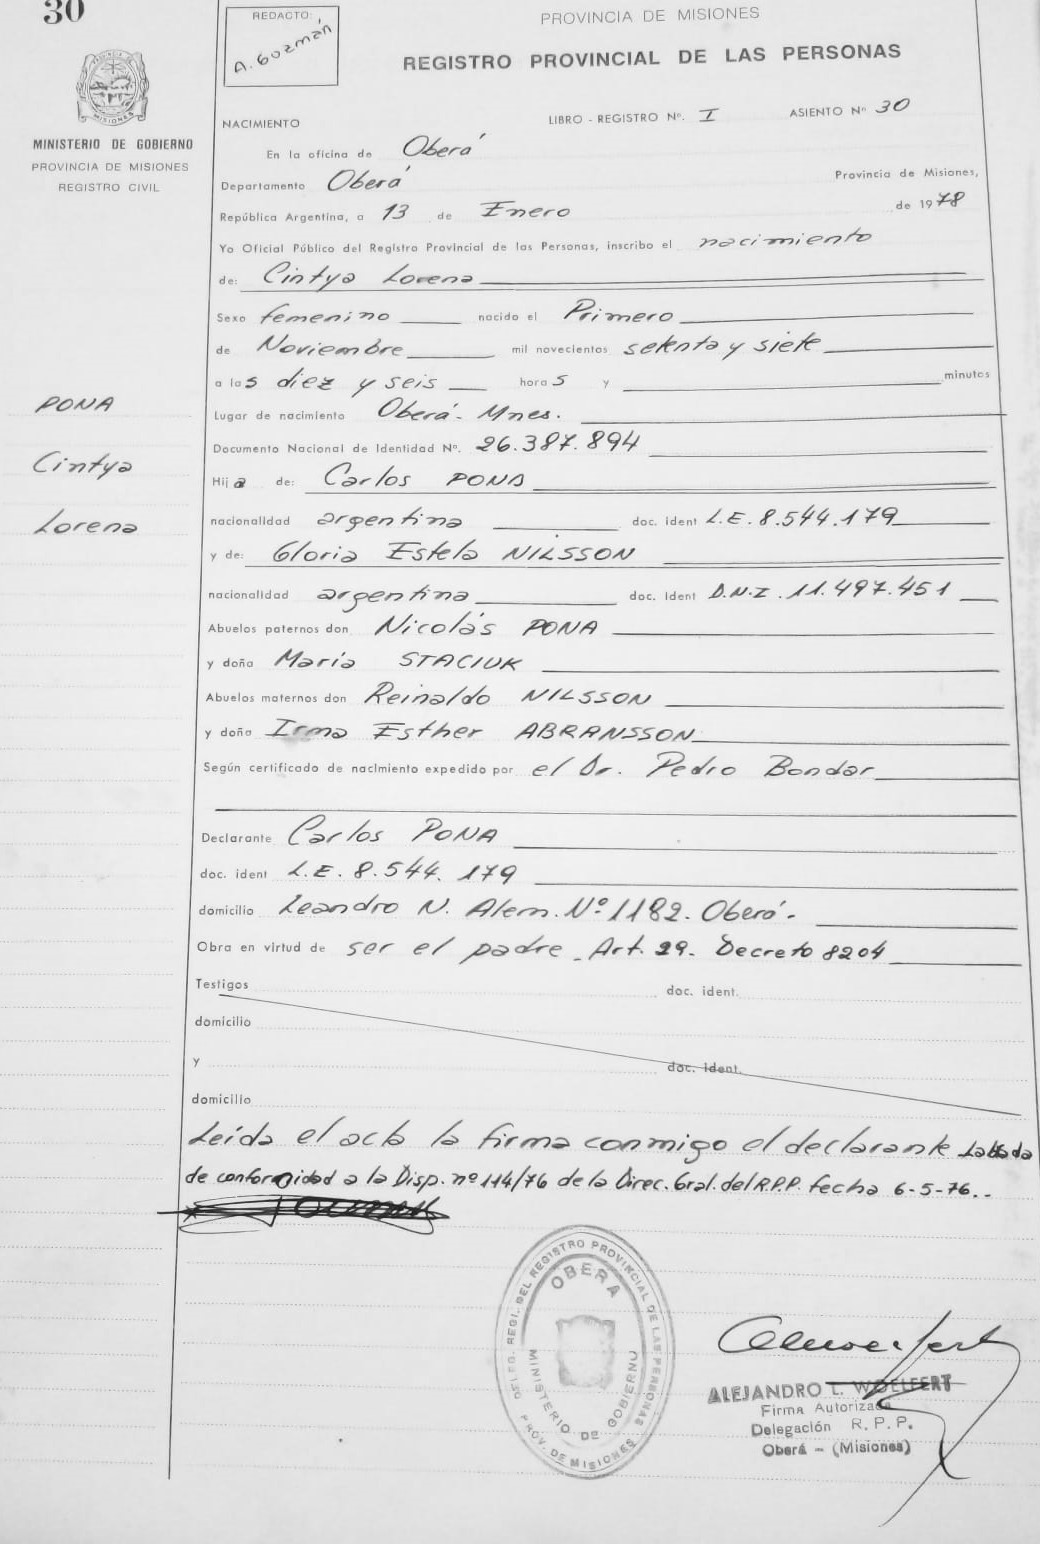 30
REDACTO:
A. Guzmán
PROVINCIA DE MISIONES
REGISTRO PROVINCIAL DE LAS PERSONAS
PROVINCIA DE
MISIONES
MINISTERIO DE GOBIERNO
PROVINCIA DE MISIONES
REGISTRO CIVIL
NACIMIENTO LIBRO - REGISTRO Nº. I ASIENTO Nº 30
En la oficina de Oberá
Departamento Oberá Provincia de Misiones,
República Argentina, a 13 de Enero de 1978
Yo Oficial Público del Registro Provincial de las Personas, inscribo el nacimiento
de: Cintya Lorena
Sexo femenino nacido el Primero
de Noviembre mil novecientos setenta y siete
a las diez y seis horas y minutos
Lugar de nacimiento Oberá - Mnes.
Documento Nacional de Identidad Nº. 26.387.894
Hija de: Carlos PONA
nacionalidad argentina doc. ident L.E. 8.544.179
y de: Gloria Estela NILSSON
nacionalidad argentina doc. ident D.N.I. 11.497.451
Abuelos paternos don Nicolás PONA
y doña María STACIUK
Abuelos maternos don Reinaldo NILSSON
y doña Irma Esther ABRANSSON
Según certificado de nacimiento expedido por el Dr. Pedro Bondar
Declarante Carlos PONA
doc. ident L.E. 8.544.179
domicilio Leandro N. Alem. Nº 1182. Oberá -
Obra en virtud de ser el padre - Art. 29 - Decreto 8204
Testigos doc. ident.
domicilio
y doc. ident.
domicilio
Leída el acta la firma conmigo el declarante Labrada
de conformidad a la Disp. nº 114/76 de la Direc. Gral. del R.P.P. fecha 6-5-76. -
PONA
Cintya
Lorena
DELEG. REGI. DEL REGISTRO PROVINCIAL DE LAS PERSONAS
OBERA
MINISTERIO DE GOBIERNO
PROV. DE MISIONES
ALEJANDRO L. WOELFERT
Firma Autorizada
Delegación R. P. P.
Oberá - (Misiones)